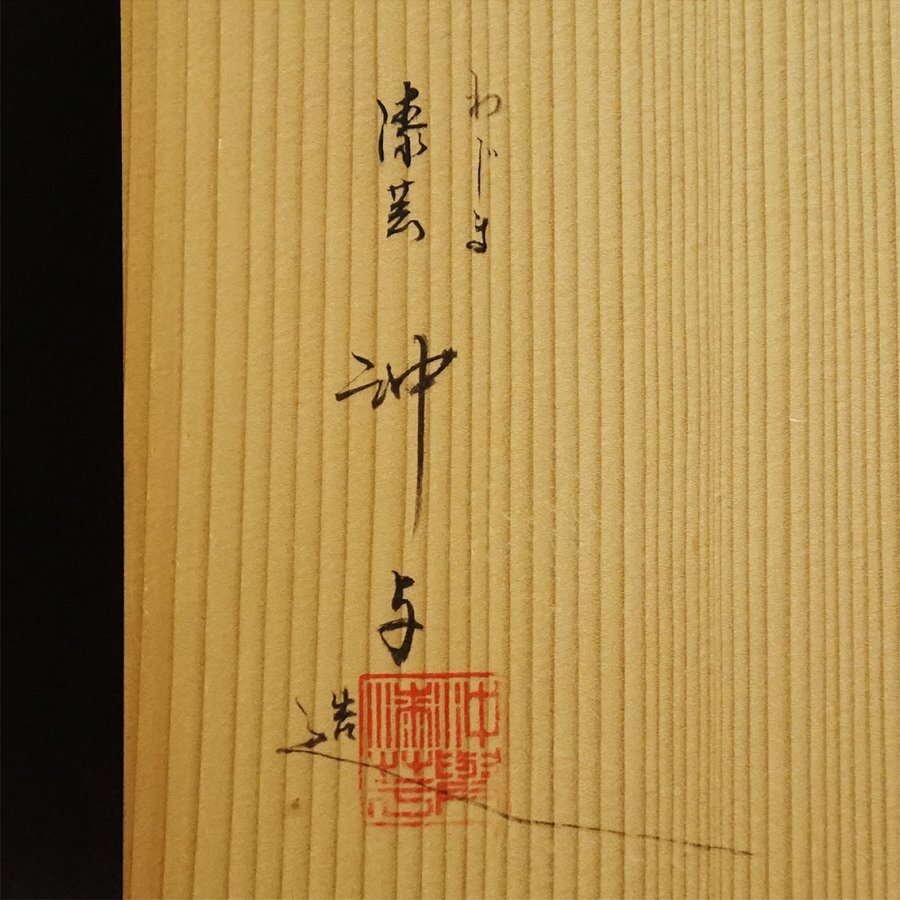 わじま
漆芸
沖与
造
沖與
漆芸